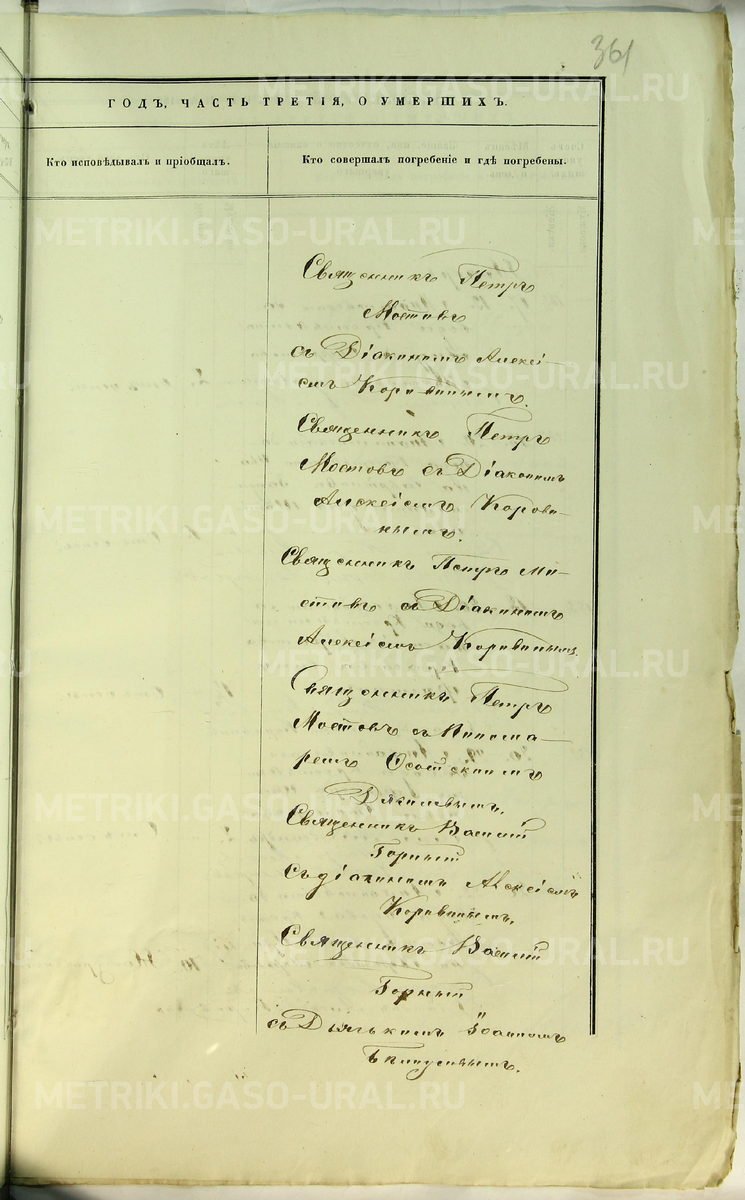 361
ГОДЪ, ЧАСТЬ ТРЕТІЯ, О УМЕРШИХЪ.
Кто исповѣдывалъ и пріобщалъ.
Кто совершалъ погребеніе и гдѣ погребены.
Священникъ Петръ
Мостовъ
съ Діакономъ Алексі-
емъ Коровинымъ.
Священникъ Петръ
Мостовъ съ Діакономъ
Алексіемъ Корови-
нымъ.
Священникъ Петръ Мо-
стовъ съ Діакономъ
Алексіемъ Коровинымъ.
Священникъ Петръ
Мостовъ съ Понома-
ремъ
Священникъ Василій
Горный
съ діакономъ Алексіемъ
Коровинымъ.
Священникъ Василій
Горный
съ Дьячкомъ Іоанномъ
METRIKI.GASO-URAL.RU